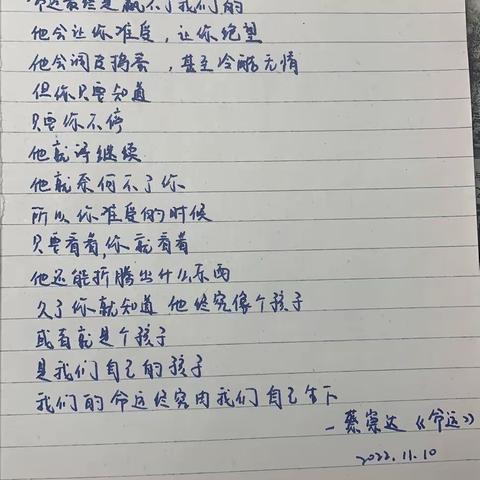 命运最终是赢不了我们的
他会让你难受，让你绝望
他会调皮捣蛋，甚至冷酷无情
但你只要知道
只要你不停
他就得继续
他就奈何不了你
所以你难受的时候
只要看着，你就看着
他还能折腾出什么东西
久了你就知道 他终究像个孩子
或者就是个孩子
是我们自己的孩子
我们的命运终究由我们自己生下
—蔡崇达《命运》
2022.11.10